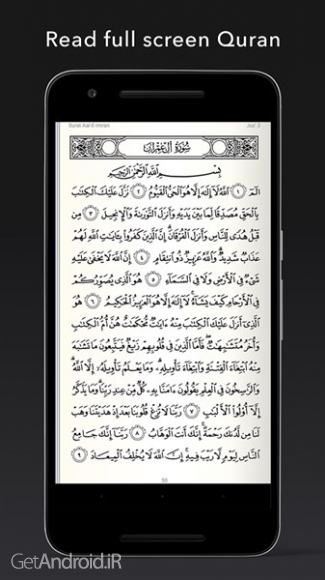 Read full screen Quran
Surat Aal-E-Imran Juz' 3
سُورَةُ آلِ عِمْرَانَ
بِسْمِ ٱللَّهِ ٱلرَّحْمَٰنِ ٱلرَّحِيمِ
الٓمٓ ١ ٱللَّهُ لَآ إِلَٰهَ إِلَّا هُوَ ٱلْحَىُّ ٱلْقَيُّومُ ٢ نَزَّلَ عَلَيْكَ ٱلْكِتَٰبَ
بِٱلْحَقِّ مُصَدِّقًا لِّمَا بَيْنَ يَدَيْهِ وَأَنزَلَ ٱلتَّوْرَىٰةَ وَٱلْإِنجِيلَ ٣ مِن
قَبْلُ هُدًى لِّلنَّاسِ وَأَنزَلَ ٱلْفُرْقَانَ إِنَّ ٱلَّذِينَ كَفَرُوا۟ بِـَٔايَٰتِ ٱللَّهِ لَهُمْ
عَذَابٌ شَدِيدٌ وَٱللَّهُ عَزِيزٌ ذُو ٱنتِقَامٍ ٤ إِنَّ ٱللَّهَ لَا يَخْفَىٰ عَلَيْهِ
شَىْءٌ فِى ٱلْأَرْضِ وَلَا فِى ٱلسَّمَآءِ ٥ هُوَ ٱلَّذِى يُصَوِّرُكُمْ
فِى ٱلْأَرْحَامِ كَيْفَ يَشَآءُ لَآ إِلَٰهَ إِلَّا هُوَ ٱلْعَزِيزُ ٱلْحَكِيمُ ٦ هُوَ
ٱلَّذِىٓ أَنزَلَ عَلَيْكَ ٱلْكِتَٰبَ مِنْهُ ءَايَٰتٌ مُّحْكَمَٰتٌ هُنَّ أُمُّ ٱلْكِتَٰبِ
وَأُخَرُ مُتَشَٰبِهَٰتٌ فَأَمَّا ٱلَّذِينَ فِى قُلُوبِهِمْ زَيْغٌ فَيَتَّبِعُونَ مَا تَشَٰبَهَ
مِنْهُ ٱبْتِغَآءَ ٱلْفِتْنَةِ وَٱبْتِغَآءَ تَأْوِيلِهِۦ وَمَا يَعْلَمُ تَأْوِيلَهُۥٓ إِلَّا ٱللَّهُ
وَٱلرَّٰسِخُونَ فِى ٱلْعِلْمِ يَقُولُونَ ءَامَنَّا بِهِۦ كُلٌّ مِّنْ عِندِ رَبِّنَا وَمَا يَذَّكَّرُ
إِلَّآ أُو۟لُوا۟ ٱلْأَلْبَٰبِ ٧ رَبَّنَا لَا تُزِغْ قُلُوبَنَا بَعْدَ إِذْ هَدَيْتَنَا وَهَبْ
لَنَا مِن لَّدُنكَ رَحْمَةً إِنَّكَ أَنتَ ٱلْوَهَّابُ ٨ رَبَّنَآ إِنَّكَ جَامِعُ
ٱلنَّاسِ لِيَوْمٍ لَّا رَيْبَ فِيهِ إِنَّ ٱللَّهَ لَا يُخْلِفُ ٱلْمِيعَادَ ٩
50
GetAndroid.iR